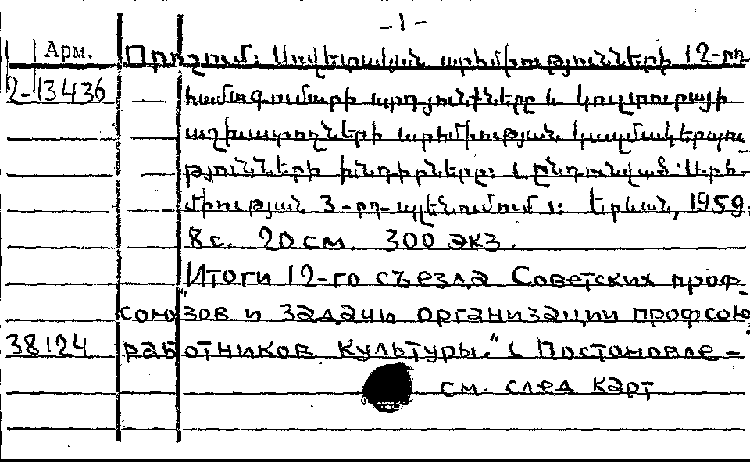 -1-
Арм. Որոշում: Սովետական արհմիությունների 12-րդ
2-13436 համագումարի արդյունքները և կուլտուրայի
աշխատողների արհմիության կազմակերպու
թյունների խնդիրները: ընդունված արհ-
միության 3-րդ պլենումում: Երևան, 1959.
8 с. 20 см. 300 экз.
Итоги 12-го съезда Советских проф-
союзов и задачи организации профсою
38124 работников культуры." (Постановле-
см. след карт